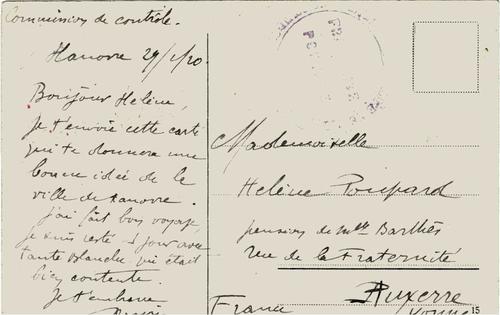 Commission de contrôle.
Hanovre 29/1/20.
Bonjour Hélène,
Je t'envoie cette carte
qui te donnera une
bonne idée de la
ville de Hanovre.
J'ai fait bon voyage,
je suis resté 1 jour avec
tante Blanche qui était
bien contente.
Je t'embrasse
Mademoiselle
Hélène Poupard
pension de Mlle Barthès
rue de la Fraternité
Auxerre
Yonne
France
15